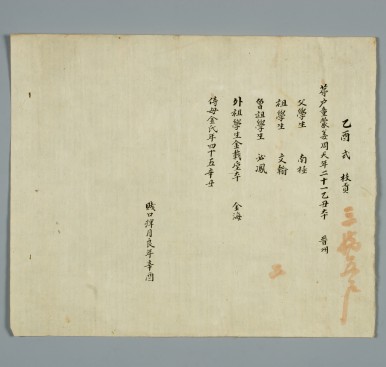 乙酉式
三統五戶
第戶童蒙姜周天年二十一乙丑本 晉州
父學生 南極
祖學生 文翰
曾祖學生 必鳳
外祖學生金載 本 金海
侍母金氏年四十五辛丑
賤口婢月良年辛酉